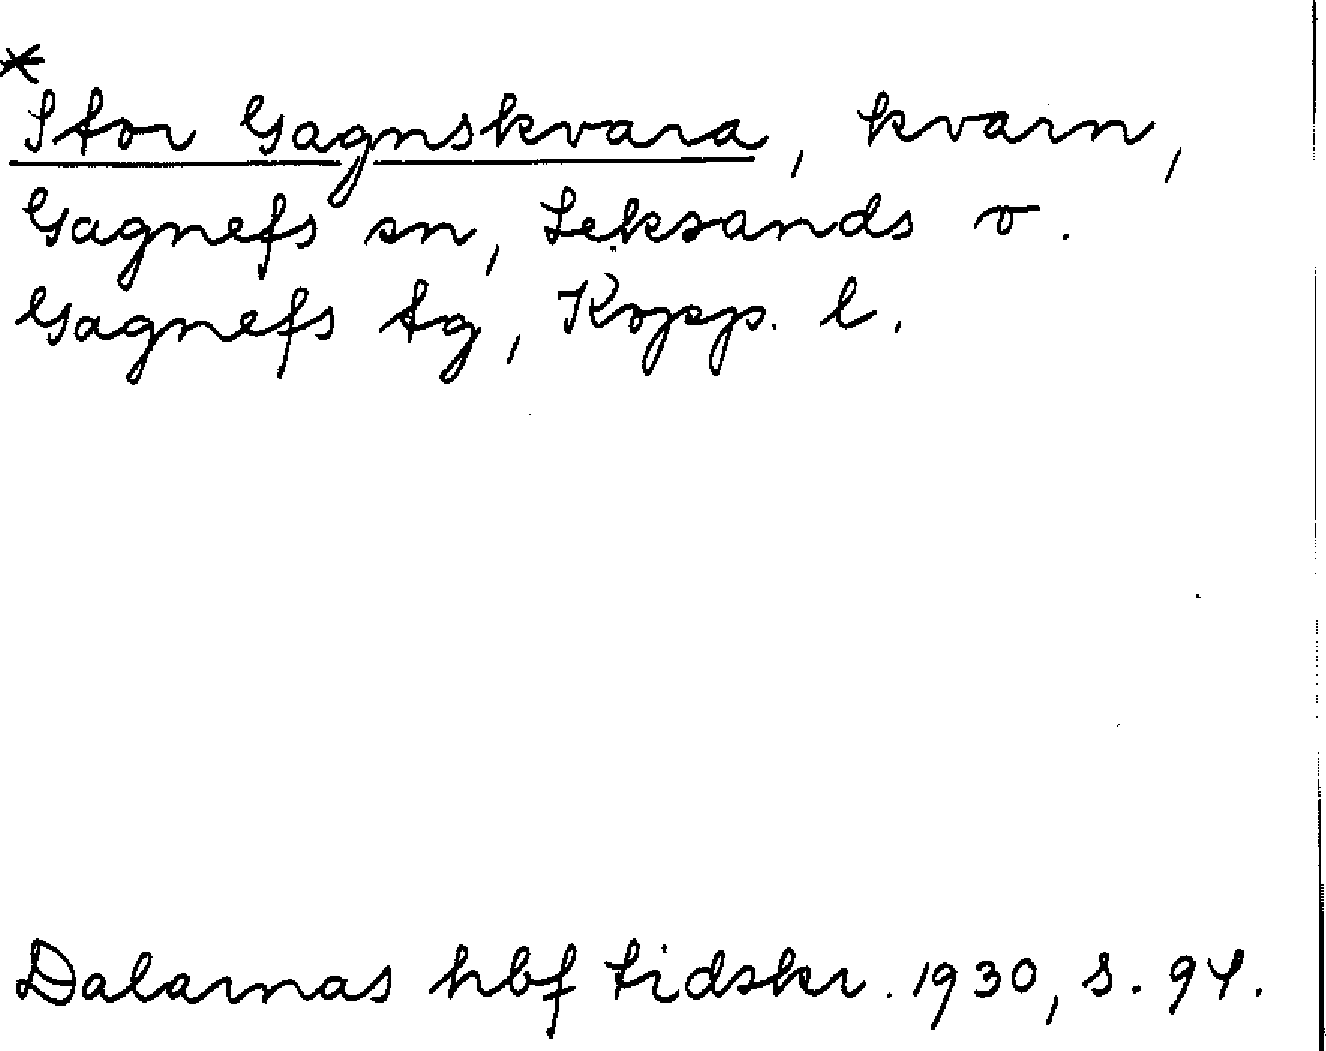 *
Stor Gagnskvara, kvarn,
Gagnefs sn, Leksands o.
Gagnefs tg, Kopp. l.
Dalarnas hbf tidskr. 1930, s. 94.